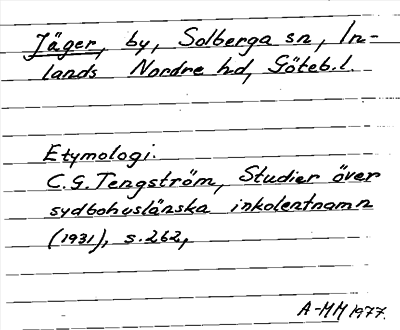 Jäger, by, Solberga sn, In-
lands Nordre hd, Göteb.l.
Etymologi.
C.G.Tengström, Studier över
sydbohuslänska inkolentnamn
(1931), s.262,
A-MM 1977.